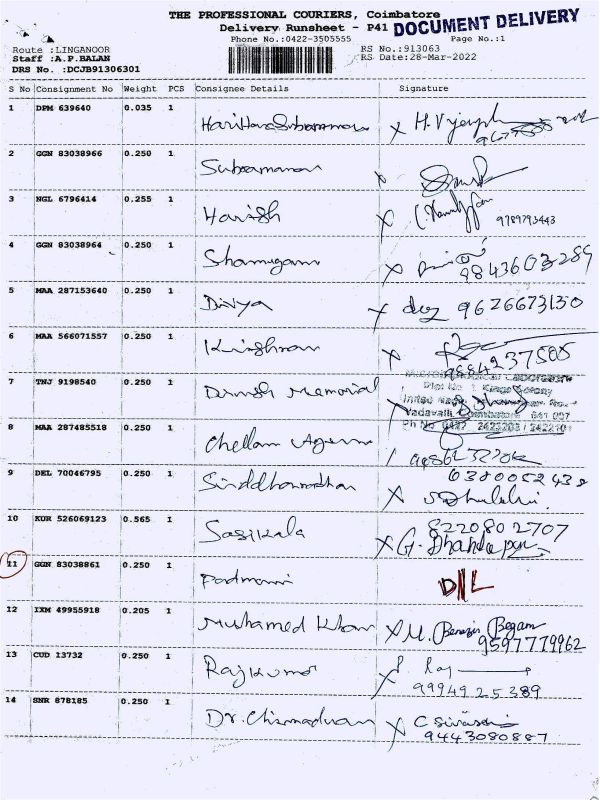 THE PROFESSIONAL COURIERS, Coimbatore
Delivery Runsheet - P41 DOCUMENT DELIVERY
Phone No.:0422-3505555 Page No.:1
Route :LINGANOOR RS No.:913063
Staff :A.P.BALAN RS Date:28-Mar-2022
DRS No. :DCJB91306301
S No Consignment No Weight PCS Consignee Details Signature
1 DPM 639640 0.035 1 H.V
2 GGN 83038966 0.250 1 Subramanan
3 NGL 6796414 0.255 1 Harish 9789793443
4 GGN 83038964 0.250 1 Shamugam 9843603289
5 MAA 287153640 0.250 1 Divya 9626673150
6 MAA 566071557 0.250 1 Krishnan 9884237505
7 TNJ 9198540 0.250 1 Memorial
Vadavalli Coimbatore 641 007
8 MAA 287485518 0.250 1 Chellam
9 DEL 70046795 0.250 1 6380052438
10 KUR 526069123 0.565 1 Sasikala 8220802707
G. Dhandapani
11 GGN 83038861 0.250 1 Padmani D//L
12 IXM 49955918 0.205 1 Muhamed Khan M. Benazir Begam
9597779962
13 CUD 13732 0.250 1 Rajkumar Raj
9994925389
14 SNR 878185 0.250 1 Dr. C
9443080887